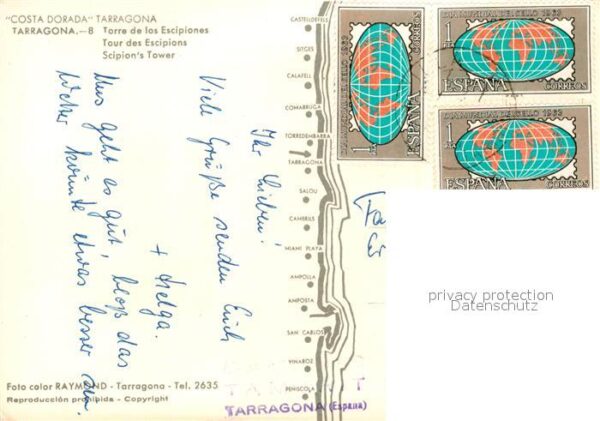 "COSTA DORADA" TARRAGONA
TARRAGONA.—8 Torre de los Escipiones
Tour des Escipions
Scipion's Tower
CASTELLDEFELS
SITGES
CALAFELL
COMARRUGA
TORREDEMBARRA
TARRAGONA
SALOU
CAMBRILS
MIAMI PLAYA
AMPOLLA
AMPOSTA
SAN CARLOS
VINAROZ
PEÑISCOLA
Ihr Lieben!
Viele Grüße senden Euch
+ Helga.
Uns geht es gut, bloß das
Wetter könnte etwas besser sein.
DIA MUNDIAL DEL SELLO 1963
1
ESPAÑA
CORREOS
DIA MUNDIAL DEL SELLO 1963
1
ESPAÑA
CORREOS
DIA MUNDIAL DEL SELLO 1963
1
ESPAÑA
CORREOS
privacy protection
Datenschutz
Foto color RAYMOND - Tarragona - Tel. 2635
Reproducción prohibida - Copyright
TARRAGONA (España)